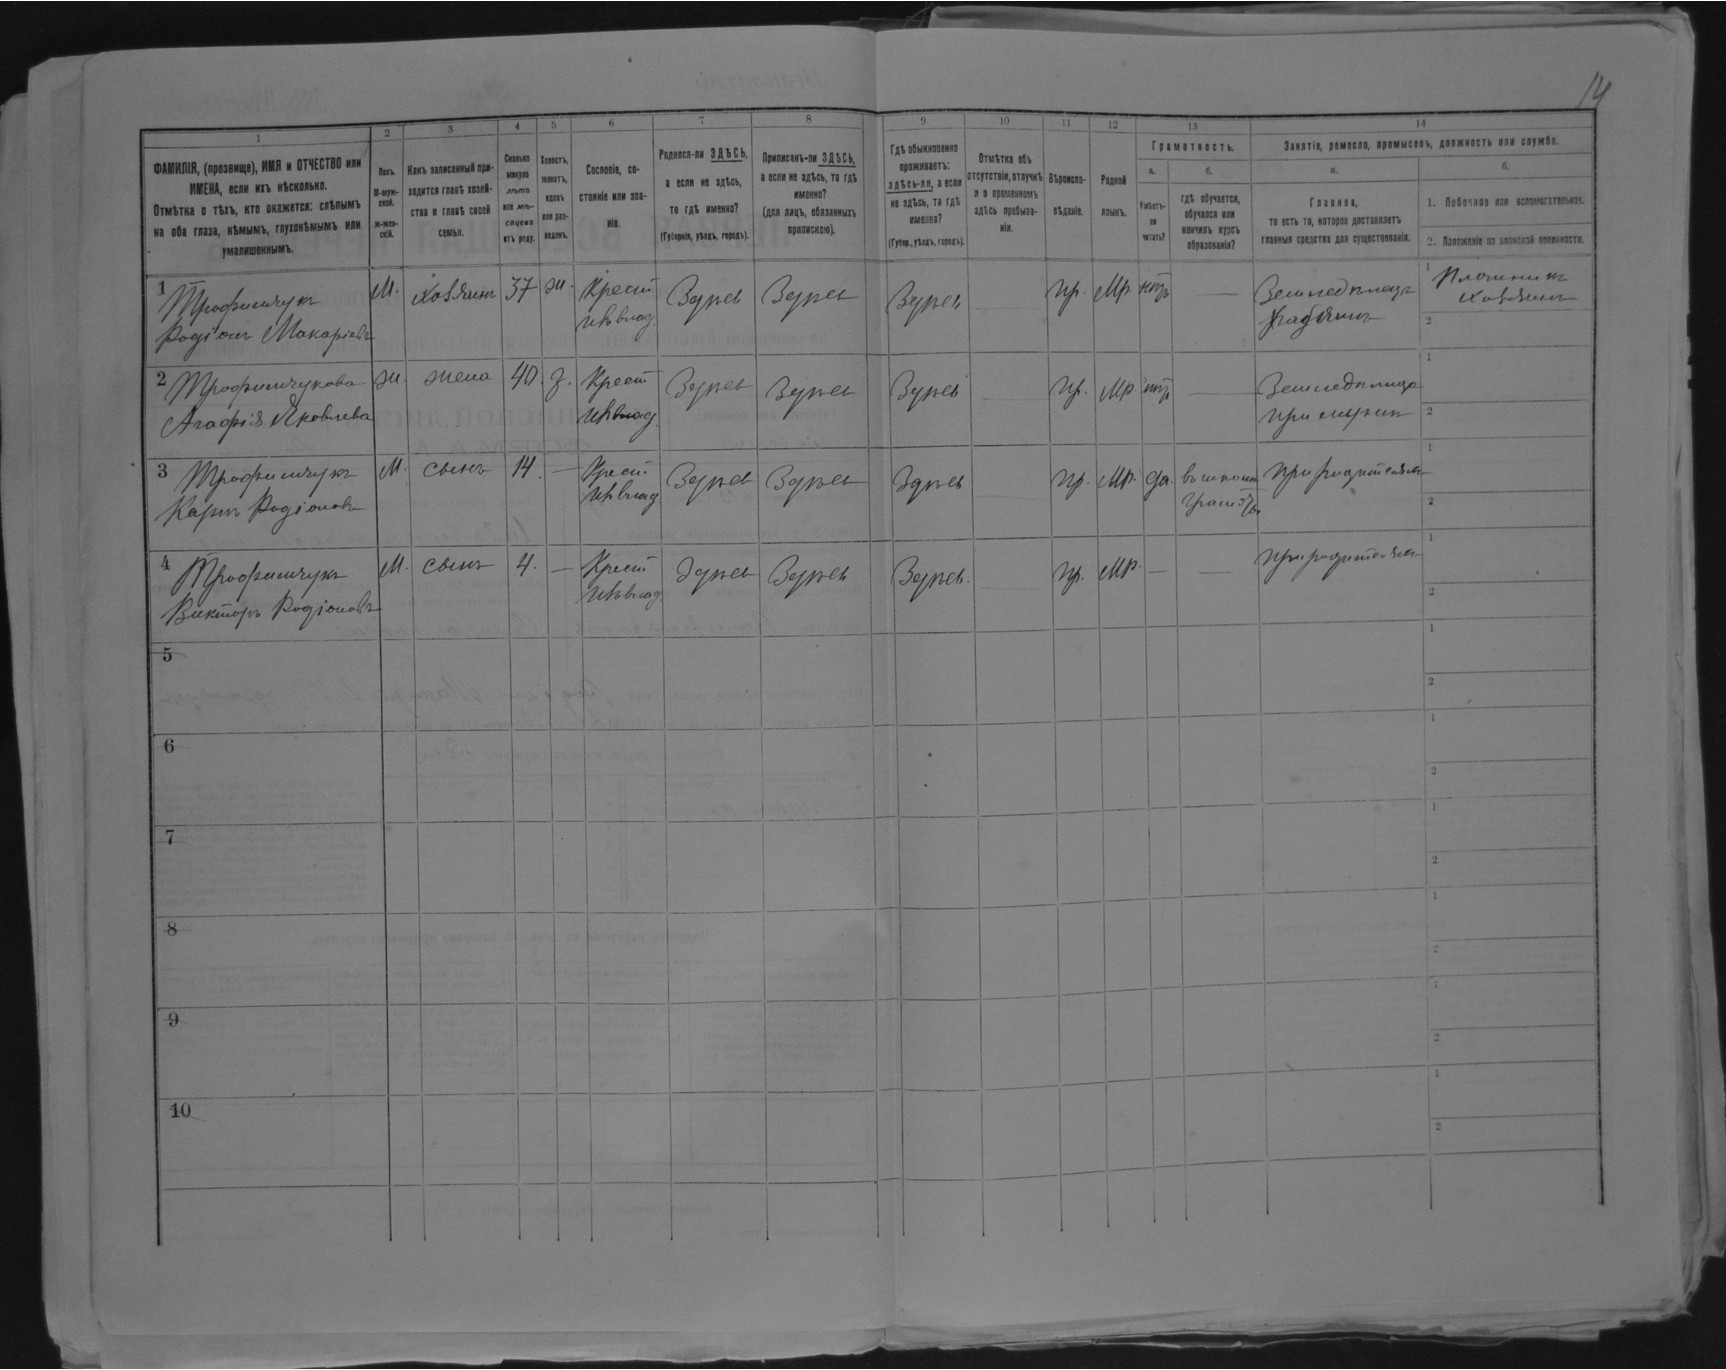 14
1 2 3 4 5 6 7 8 9 10 11 12 13 14
ФАМИЛІЯ, (прозвище), ИМЯ и ОТЧЕСТВО или
ИМЕНА, если ихъ нѣсколько.
Отмѣтка о тѣхъ, кто окажется: слѣпымъ
на оба глаза, нѣмымъ, глухонѣмымъ или
умалишеннымъ.
Полъ.
М-муж-
ской.
ж-жен-
скій.
Какъ записанный при-
ходится главѣ хозяй-
ства и главѣ своей
семьи.
Сколько
минуло
лѣтъ
или мѣ-
сяцевъ
отъ роду.
Холостъ,
женатъ,
вдовъ
или раз-
веденъ.
Сословіе, со-
стояніе или зва-
ніе.
Родился-ли ЗДѢСЬ,
а если не здѣсь,
то гдѣ именно?
(Губернія, уѣздъ, городъ).
Приписанъ-ли ЗДѢСЬ,
а если не здѣсь, то гдѣ
именно?
(для лицъ, обязанныхъ
припискою).
Гдѣ обыкновенно
проживаетъ:
здѣсь-ли, а если
не здѣсь, то гдѣ
именно?
(Губер., уѣздъ, городъ).
Отмѣтка объ
отсутствіи, отлучкѣ
и о временномъ
здѣсь пребыва-
ніи.
Вѣроиспо-
вѣданіе.
Родной
языкъ.
Грамотность.
а.
Умѣетъ-
ли
читать?
б.
гдѣ обучается,
обучался или
кончилъ курсъ
образованія?
Занятіе, ремесло, промыселъ, должность или служба.
а.
Главное,
то есть то, которое доставляетъ
главныя средства для существованія.
б.
1. Побочное или вспомогательное.
2. Положеніе по воинской повинности.
1 Трофимчукъ М. хозяинъ 37 ж. Крест Здѣсь Здѣсь Здѣсь — пр. Мр нѣтъ — Земледѣлецъ 1 Плотникъ
Родіонъ Макаріевъ хозяинъ хозяинъ 2
2 Трофимчукова ж. жена 40. з. Крест Здѣсь Здѣсь Здѣсь — пр. Мр нѣтъ — Земледѣлица 1
Агафія Яковлева при мужѣ 2
3 Трофимчукъ М. сынъ 14. — Крест Здѣсь Здѣсь Здѣсь — пр. Мр. да. при родителяхъ 1
Карпъ Родіоновъ 2
4 Трофимчукъ М. сынъ 4. — Крест Здѣсь Здѣсь Здѣсь. — пр. Мр. — — при родителяхъ 1
Викторъ Родіоновъ 2
5 1
2
6 1
2
7 1
2
8 1
2
9 1
2
10 1
2